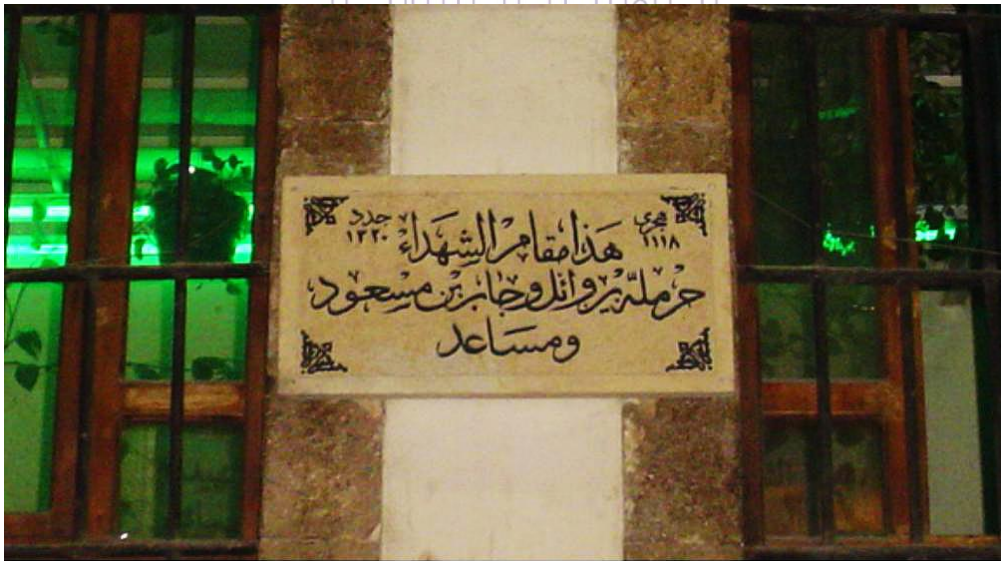 هجري ١١١٨
هذا مقام الشهداء
جدد ١٣٢٠
حرملة بن وائل وجابر بن مسعود
ومساعد